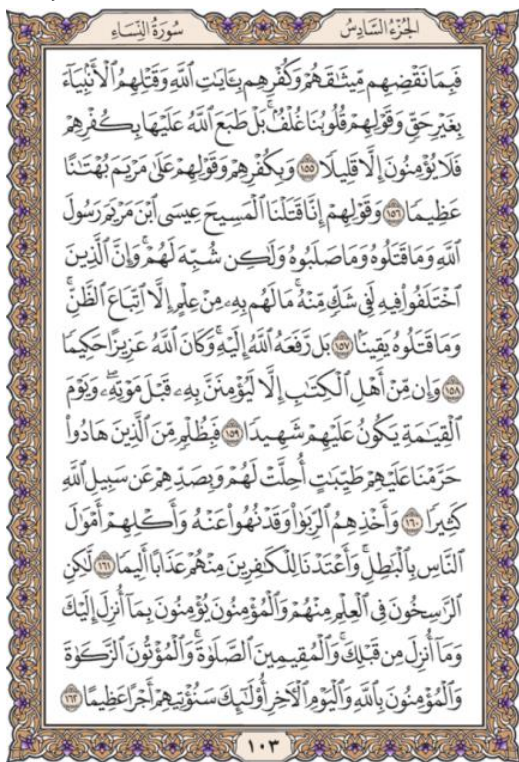 الجُزْءُ السَّادِسُ سُورَةُ النِّسَاءِ
فَبِمَا نَقۡضِهِم مِّيثَٰقَهُمۡ وَكُفۡرِهِم بِـَٔايَٰتِ ٱللَّهِ وَقَتۡلِهِمُ ٱلۡأَنۢبِيَآءَ
بِغَيۡرِ حَقّٖ وَقَوۡلِهِمۡ قُلُوبُنَا غُلۡفُۢۚ بَلۡ طَبَعَ ٱللَّهُ عَلَيۡهَا بِكُفۡرِهِمۡ
فَلَا يُؤۡمِنُونَ إِلَّا قَلِيلٗا ١٥٥ وَبِكُفۡرِهِمۡ وَقَوۡلِهِمۡ عَلَىٰ مَرۡيَمَ بُهۡتَٰنًا
عَظِيمٗا ١٥٦ وَقَوۡلِهِمۡ إِنَّا قَتَلۡنَا ٱلۡمَسِيحَ عِيسَى ٱبۡنَ مَرۡيَمَ رَسُولَ
ٱللَّهِ وَمَا قَتَلُوهُ وَمَا صَلَبُوهُ وَلَٰكِن شُبِّهَ لَهُمۡۚ وَإِنَّ ٱلَّذِينَ
ٱخۡتَلَفُواْ فِيهِ لَفِي شَكّٖ مِّنۡهُۚ مَا لَهُم بِهِۦ مِنۡ عِلۡمٍ إِلَّا ٱتِّبَاعَ ٱلظَّنِّۚ
وَمَا قَتَلُوهُ يَقِينَۢا ١٥٧ بَل رَّفَعَهُ ٱللَّهُ إِلَيۡهِۚ وَكَانَ ٱللَّهُ عَزِيزًا حَكِيمٗا
١٥٨ وَإِن مِّنۡ أَهۡلِ ٱلۡكِتَٰبِ إِلَّا لَيُؤۡمِنَنَّ بِهِۦ قَبۡلَ مَوۡتِهِۦۖ وَيَوۡمَ
ٱلۡقِيَٰمَةِ يَكُونُ عَلَيۡهِمۡ شَهِيدٗا ١٥٩ فَبِظُلۡمٖ مِّنَ ٱلَّذِينَ هَادُواْ
حَرَّمۡنَا عَلَيۡهِمۡ طَيِّبَٰتٍ أُحِلَّتۡ لَهُمۡ وَبِصَدِّهِمۡ عَن سَبِيلِ ٱللَّهِ
كَثِيرٗا ١٦٠ وَأَخۡذِهِمُ ٱلرِّبَوٰاْ وَقَدۡ نُهُواْ عَنۡهُ وَأَكۡلِهِمۡ أَمۡوَٰلَ
ٱلنَّاسِ بِٱلۡبَٰطِلِۚ وَأَعۡتَدۡنَا لِلۡكَٰفِرِينَ مِنۡهُمۡ عَذَابًا أَلِيمٗا ١٦١ لَّٰكِنِ
ٱلرَّٰسِخُونَ فِي ٱلۡعِلۡمِ مِنۡهُمۡ وَٱلۡمُؤۡمِنُونَ يُؤۡمِنُونَ بِمَآ أُنزِلَ إِلَيۡكَ
وَمَآ أُنزِلَ مِن قَبۡلِكَۚ وَٱلۡمُقِيمِينَ ٱلصَّلَوٰةَۚ وَٱلۡمُؤۡتُونَ ٱلزَّكَوٰةَ
وَٱلۡمُؤۡمِنُونَ بِٱللَّهِ وَٱلۡيَوۡمِ ٱلۡأٓخِرِ أُوْلَٰٓئِكَ سَنُؤۡتِيهِمۡ أَجۡرًا عَظِيمًا ١٦٢
١٠٣